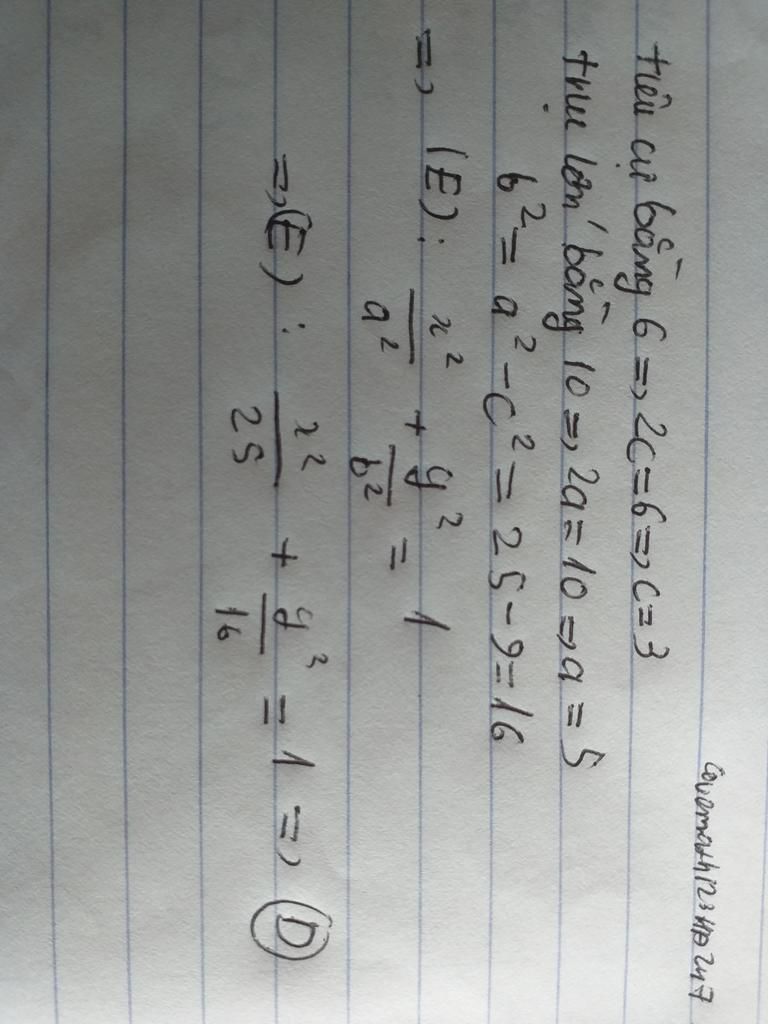 tiêu cự bằng 6 => 2c=6=> c=3
trục lớn bằng 10 => 2a=10 => a=5
b² = a² - c² = 25-9=16
=> (E): x²/a² + y²/b² = 1
=> (E): x²/25 + y²/16 = 1 => D